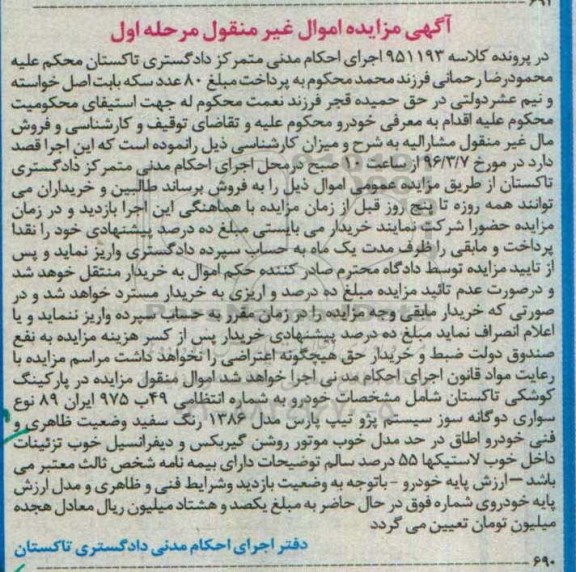 ۶۹۲
آگهی مزایده اموال غیر منقول مرحله اول
در پرونده کلاسه ۹۵۱۱۹۳ اجرای احکام مدنی متمرکز دادگستری تاکستان محکم علیه
محمودرضا رحمانی فرزند محمد محکوم به پرداخت مبلغ ۸۰ عدد سکه بابت اصل خواسته
و نیم عشر دولتی در حق حمیده قجر فرزند نعمت محکوم له جهت استیفای محکومیت
محکوم علیه اقدام به معرفی خودرو محکوم علیه و تقاضای توقیف و کارشناسی و فروش
مال غیر منقول مشارالیه به شرح و میزان کارشناسی ذیل رانموده است که این اجرا قصد
دارد در مورخ ۹۶/۳/۷ از ساعت ۹ تا ۱۰ صبح در محل اجرای احکام مدنی متمرکز دادگستری
تاکستان از طریق مزایده عمومی اموال ذیل را به فروش برساند طالبین و خریداران می
توانند همه روزه تا پنج روز قبل از زمان مزایده با هماهنگی این اجرا بازدید و در زمان
مزایده حضورا شرکت نمایند خریدار می بایستی مبلغ ده درصد پیشنهادی خود را نقدا
پرداخت و مابقی را ظرف مدت یک ماه به حساب سپرده دادگستری واریز نماید و پس
از تایید مزایده توسط دادگاه محترم صادر کننده حکم اموال به خریدار منتقل خوهد شد
و درصورت عدم تائید مزایده مبلغ ده درصد واریزی به خریدار مسترد خواهد شد و در
صورتی که خریدار مابقی وجه مزایده را در زمان مقرر به حساب سپرده واریز ننماید و یا
اعلام انصراف نماید مبلغ ده درصد پیشنهادی خریدار پس از کسر هزینه مزایده به نفع
صندوق دولت ضبط و خریدار حق هیچگونه اعتراضی را نخواهد داشت مراسم مزایده با
رعایت مواد قانون اجرای احکام مدنی اجرا خواهد شد اموال منقول مزایده در پارکینگ
کوشکی تاکستان شامل مشخصات خودرو به شماره انتظامی ۴۹ب ۹۷۵ ایران ۸۹ نوع
سواری دوگانه سوز سیستم پژو تیپ پارس مدل ۱۳۸۶ رنگ سفید وضعیت ظاهری و
فنی خودرو اطاق در حد مدل خوب موتور روشن گیربکس و دیفرانسیل خوب تزئینات
داخل خوب لاستیکها ۵۵ درصد سالم توضیحات دارای بیمه نامه شخص ثالث معتبر می
باشد –ارزش پایه خودرو - باتوجه به وضعیت بازدید وشرایط فنی و ظاهری و مدل ارزش
پایه خودروی شماره فوق در حال حاضر به مبلغ یکصد و هشتاد میلیون ریال معادل هجده
میلیون تومان تعیین می گردد
دفتر اجرای احکام مدنی دادگستری تاکستان
۶۹۰